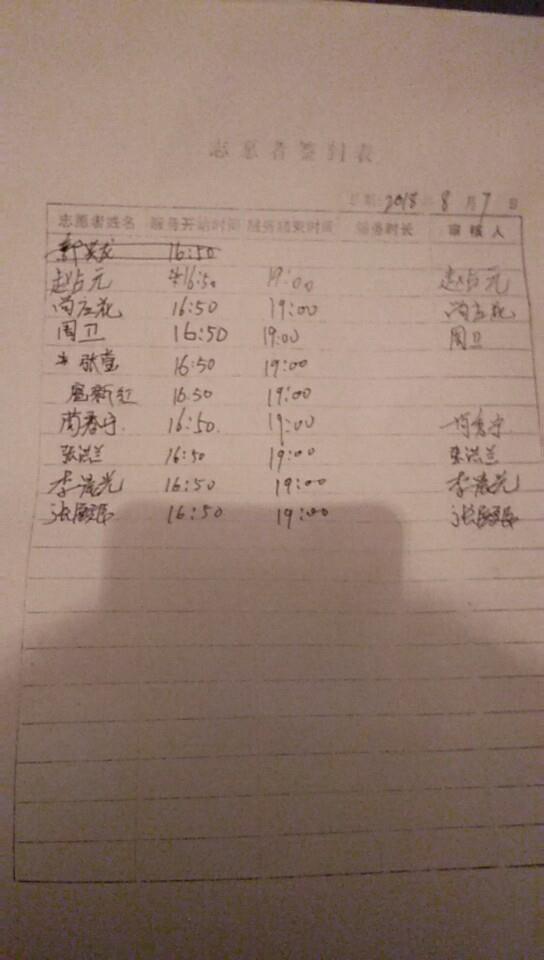 志愿者签到表
日期 2018年8月7日
志愿者姓名 服务开始时间 服务结束时间 服务时长 审核人
16:50
赵占元 16:50 19:00 赵占元
16:50 19:00
周卫 16:50 19:00 周卫
16:50 19:00
新红 16:50 19:00
16:50 19:00
张洪兰 16:50 19:00 张洪兰
李清光 16:50 19:00 李清光
16:50 19:00